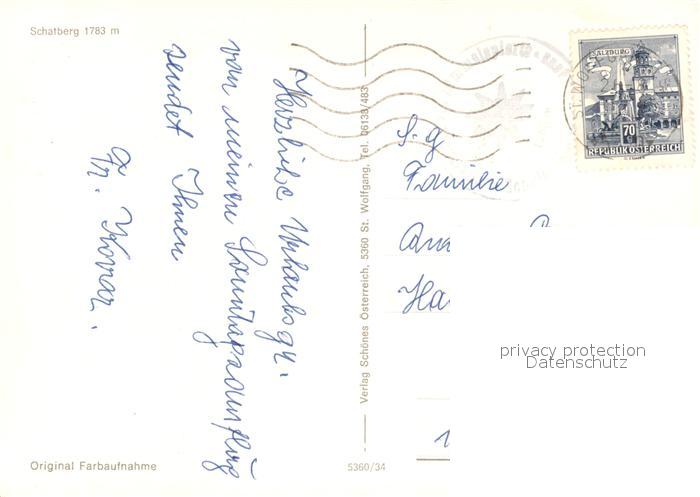 Schatberg 1783 m
Herzliche Urlaubsgr.
von meinem Sonntagsausflug
sendet Ihnen
Fr.
Original Farbaufnahme
5360/34
Verlag Schönes Österreich, 5360 St. Wolfgang, Tel. 06138/483
SALZBURG
70
REPUBLIK ÖSTERREICH
S.g
Familie
Ha
privacy protection
Datenschutz
1